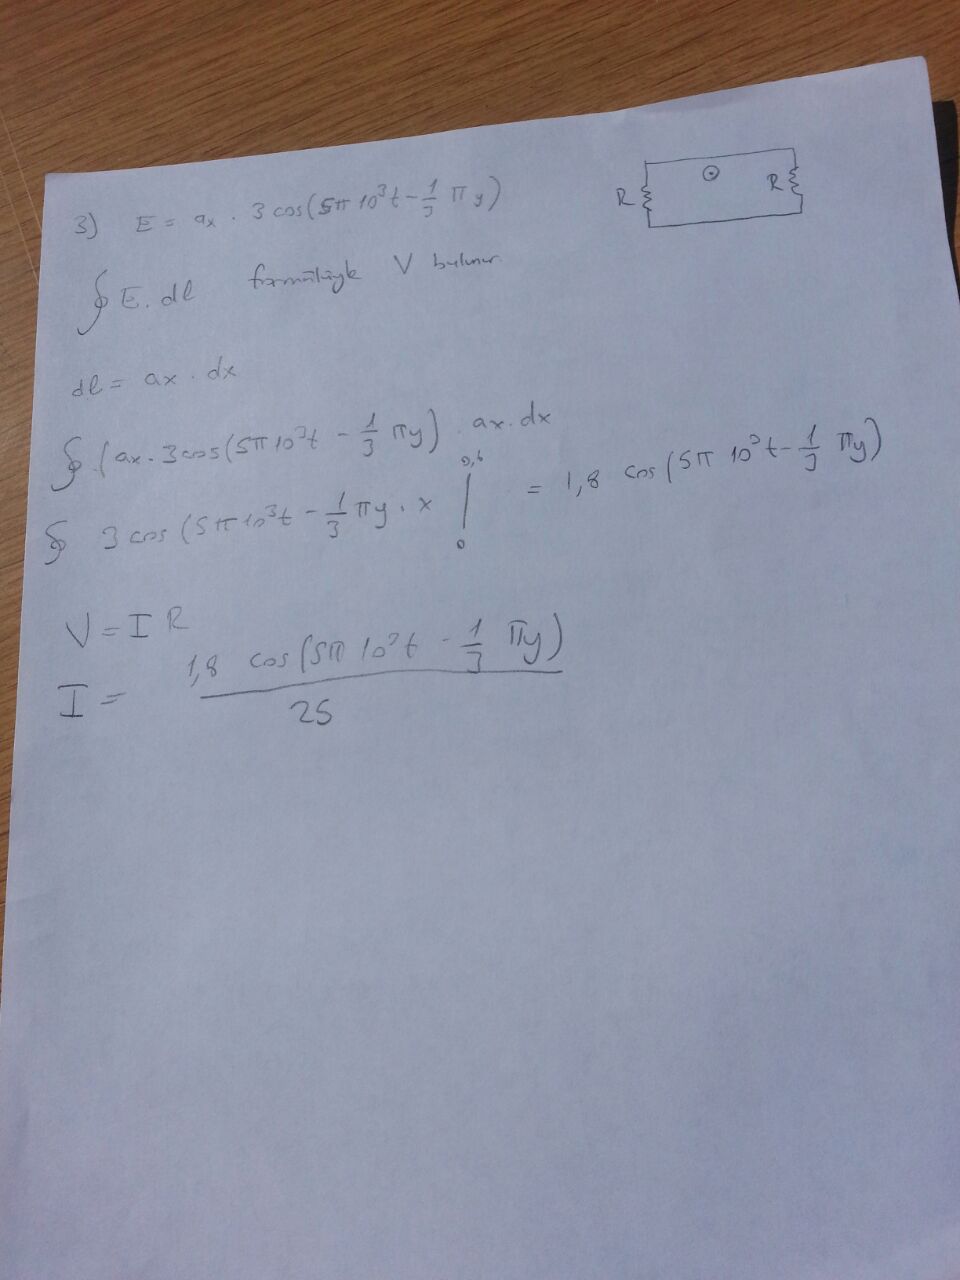 3) E = ax . 3 cos(5π 10³t - 1/3 π y)
R R
∮ E. dl formülüyle V bulunur.
dl = ax . dx
∮ (ax . 3cos(5π 10³t - 1/3 πy) . ax. dx
∮ 3 cos (5π 10³t - 1/3 πy . x |₀^0,6 = 1,8 cos (5π 10³t - 1/3 πy)
V = I R
I = 1,8 cos (5π 10³t - 1/3 πy) / 25